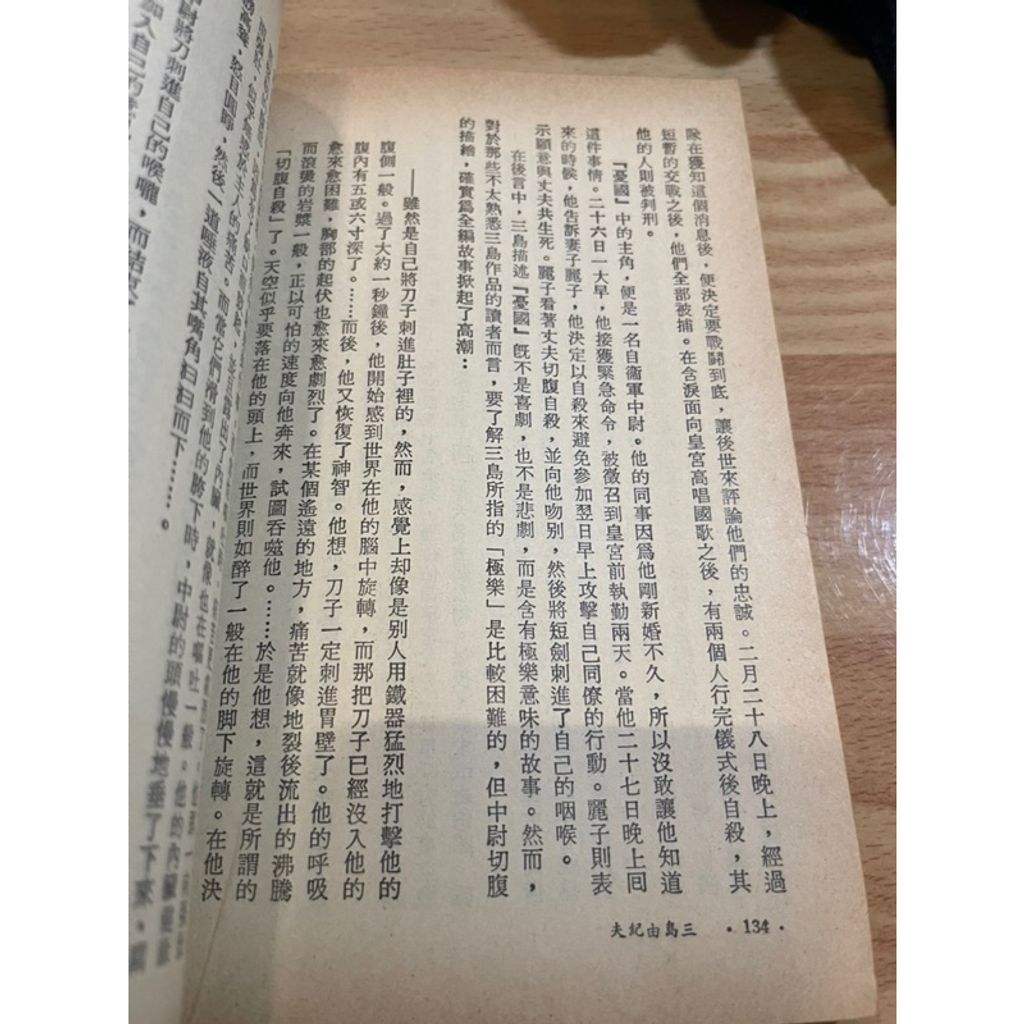 隊在獲知這個消息後，便決定要戰鬪到底，讓後世來評論他們的忠誠。二月二十八日晚上，經過
短暫的交戰之後，他們全部被捕。在含淚面向皇宮高唱國歌之後，有兩個人行完儀式後自殺，其
他的人則被判刑。
『憂國』中的主角，便是一名自衞軍中尉。他的同事因爲他剛新婚不久，所以沒敢讓他知道
這件事情。二十六日一大早，他接獲緊急命令，被徵召到皇宮前執勤兩天。當他二十七日晚上囘
來的時候，他告訴妻子麗子，他決定以自殺來避免參加翌日早上攻擊自己同僚的行動。麗子則表
示願意與丈夫共生死。麗子看著丈夫切腹自殺，並向他吻别，然後將短劍刺進了自己的咽喉。
在後言中，三島描述『憂國』旣不是喜劇，也不是悲劇，而是含有極樂意味的故事。然而，
對於那些不太熟悉三島作品的讀者而言，要了解三島所指的「極樂」是比較困難的，但中尉切腹
的描繪，確實爲全編故事掀起了高潮：
——雖然是自己將刀子刺進肚子裡的，然而，感覺上却像是别人用鐵器猛烈地打擊他的
腹側一般。過了大約一秒鐘後，他開始感到世界在他的腦中旋轉，而那把刀子已經沒入他的
腹內有五或六寸深了。……而後，他又恢復了神智。他想，刀子一定刺進胃壁了。他的呼吸
愈來愈困難，胸部的起伏也愈來愈劇烈了。在某個遙遠的地方，痛苦就像地裂後流出的沸騰
而滾燙的岩漿一般，正以可怕的速度向他奔來，試圖吞噬他。……於是他想，這就是所謂的
「切腹自殺」了。天空似乎要落在他的頭上，而世界則如醉了一般在他的脚下旋轉。在他決
三島由紀夫 ・134・
的痛苦。而當它們滑到他的胯下時，就像也在嘔吐一般。他的內臟
怒目圓睜，然後，一道唾液自其嘴角汩汩而下……。
中尉的頭慢慢地垂了下來，
尉將刀刺進自己的喉嚨，而結束
加入自己的